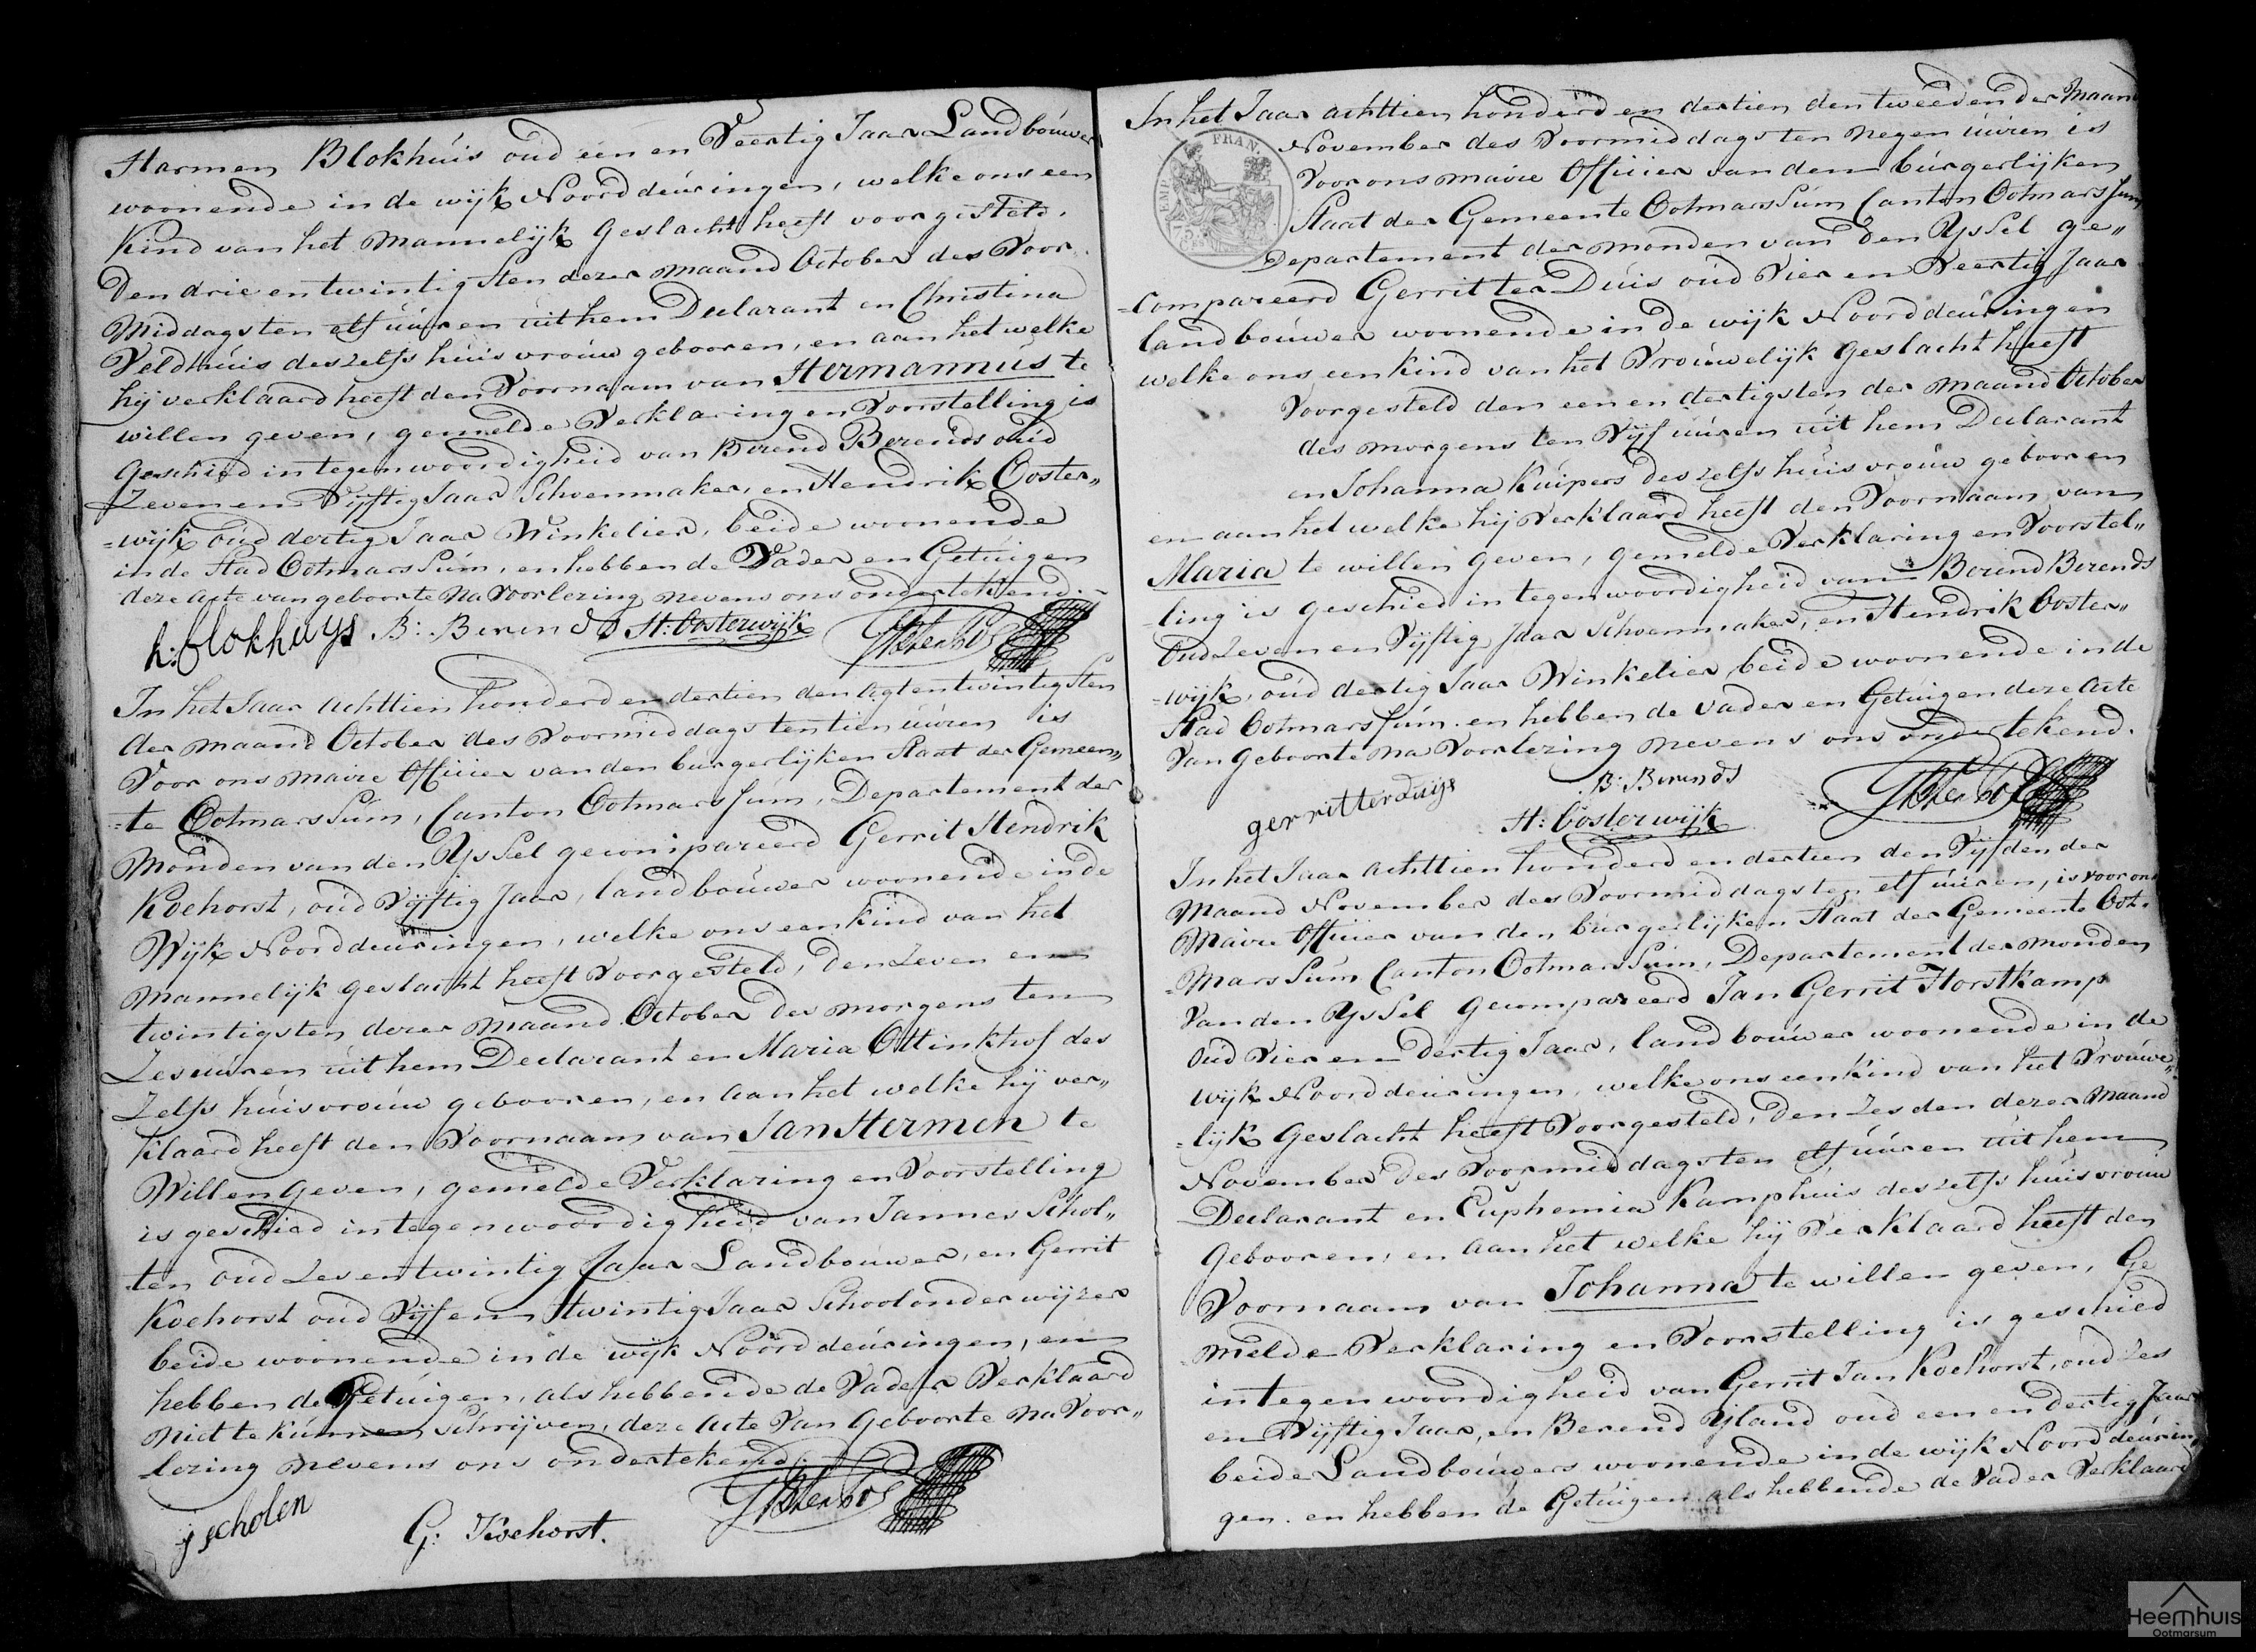 Harmen Blokhúis oúd een en Veertig Jaar Landboúwer
woonende in de wijk Noorddeúringen, welke ons een
Kind van het Mannelijk Geslacht heeft voorgesteld.
Den drie en twintigsten dezer maand October des Voor
Middags ten elf úúren úit hem Declarant en Christina
Veldhúis deszelfs húisvroúw gebooren, en aan het welke
hij verklaard heeft den Voornaam van Hermannús te
willen geven, gemelde Verklaring en Voorstelling is
Geschied in tegenwoordigheid van Berend Berends oúd
Zeven en Vijftig Jaar Schoenmaker, en Hendrik Ooster„
=wijk oúd dertig Jaar Winkelier, beide woonende
in de Stad Ootmarssúm, en hebben de Vader en Getúigen
deze Acte van geboorte Na Voorlezing nevens ons ondertekend.
h: blokhuys B: Berends H: Oosterwijk
In het Jaar Achttien honderd en dertien den Agt en twintigsten
der maand October des Voormiddags ten tien úúren is
Voor ons Maire Officier van den búrgerlijken Staat der Gemeen„
=te Ootmarssúm, Canton Ootmarssúm, Departement der
Monden van den Yssel gecompareerd Gerrit Hendrik
Koehorst, oúd Vijftig Jaar, landboúwer woonende in de
Wijk Noorddeúringen, welke ons een kind van het
Mannelijk geslacht heeft Voorgesteld, Den Zeven en
twintigsten dezer Maand October des morgens ten
Zes úúren úit hem Declarant en Maria Ottinkhof des
Zelfs húisvroúw gebooren, en aan het welke hij ver„
Klaard heeft den Voornaam van Jan Hermen te
Willen Geven, gemelde Verklaring en Voorstelling
is geschied in tegenwoordigheid van Jannes Schol„
ten oúd Zeventwintig Jaar Landboúwer, en Gerrit
Koehorst oúd Vijf en twintig Jaar Schoolonderwijzer
beide woonende in de wijk Noorddeúringen, en
hebben de Getúigen, als hebbende de Vader Verklaard
Niet te kúnnen Schrijven, deze Acte Van Geboorte Na Voor„
lezing nevens ons ondertekend.
j scholen G: Koehorst.
In het Jaar Achttien honderd en dertien den tweeden der Maand
November des Voormiddags ten Negen úúren is
EMP. FRAN.
Voor ons maire Officier van den búrgerlijken
Staat der Gemeente Ootmarssúm Canton Ootmarssúm
Departement der monden van den Yssel ge„
=compareerd Gerrit ter Dúis oúd Vier en Veertig Jaar
landboúwer woonende in de wijk Noorddeúringen
welke ons een kind van het Vroúwelijk Geslacht heeft
Voorgesteld den een en dertigsten der Maand October
des morgens ten Vijf úúren úit hem Declarant
en Johanna Kúipers deszelfs húisvroúw gebooren
en aan het welke hij Verklaard heeft den Voornaam van
Maria te willen geven, gemelde Verklaring en Voorstel„
=ling is geschied in tegenwoordigheid van Berend Berends
Oúd Zeven en Vijftig Jaar Schoenmaker, en Hendrik Ooster„
=wijk, oúd dertig Jaar Winkelier, beide woonende in de
Stad Ootmarssúm. en hebben de Vader en Getúigen deze Acte
Van Geboorte Na Voorlezing nevens ons ondertekend.
gerritterduijs B: Berends
H: Oosterwijk
In het Jaar Achttien honderd en dertien den Vijfden der
Maand November des Voormiddags ten elf úúren, is voor ons
Maire Officier van den búrgerlijken Staat der Gemeente Oot„
=Marssúm Canton Ootmarssúm, Departement der Monden
Van den Yssel Gecompareerd Jan Gerrit Horstkamp
Oúd Vier en Dertig Jaar, landboúwer woonende in de
wijk Noorddeúringen, welke ons een kind van het Vroúwe„
=lijk Geslacht heeft Voorgesteld, Den Zesden dezer Maand
November des Voormiddags ten elf úúren úit hem
Declarant en Euphemia Kamphúis deszelfs húisvroúw
Gebooren, en Aan het welke hij Verklaard heeft den
Voornaam van Johanna te willen geven, Ge
melde Verklaring en Voorstelling is geschied
in tegenwoordigheid van Gerrit Jan Koehorst, oúd Zes
en Vijftig Jaar, en Berend Yland oúd een en dertig Jaar
beide Landboúwers woonende in de wijk Noorddeúrin
gen. en hebben de Getúigen als hebbende de Vader Verklaard
Heemhuis
Ootmarsum